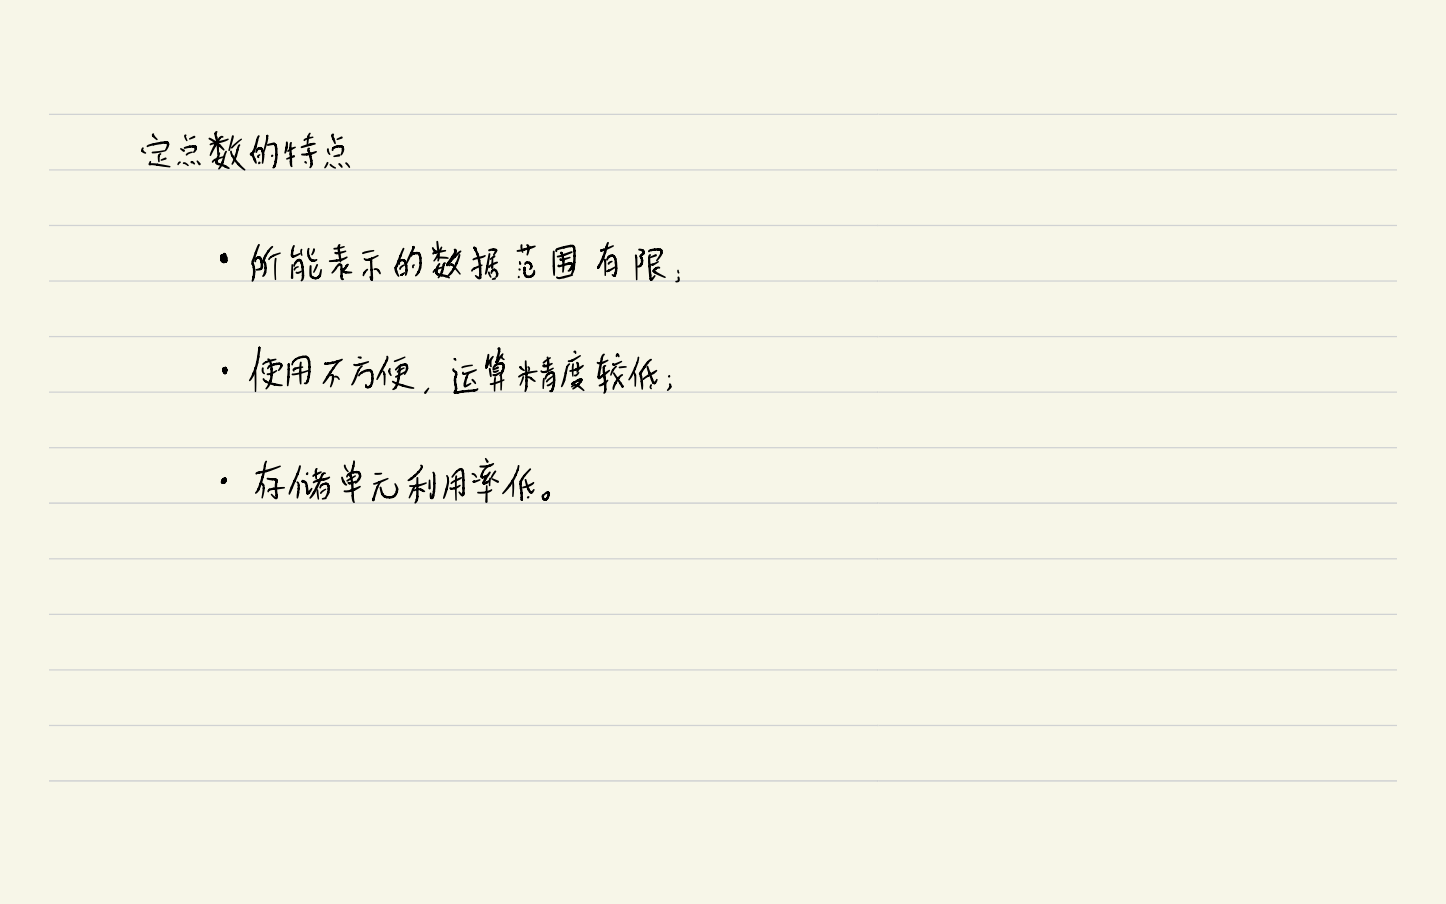 定点数的特点
• 所能表示的数据范围有限;
• 使用不方便, 运算精度较低;
• 存储单元利用率低。